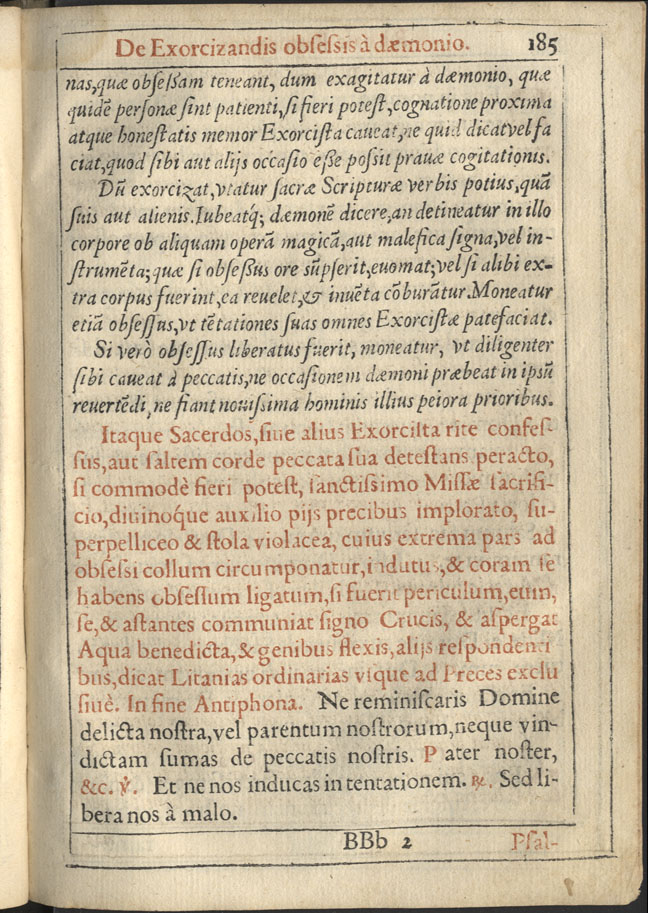 De Exorcizandis obſeſsis à dæmonio. 185
nas,quæ obſeſſam teneant, dum exagitatur à dæmonio, quæ
quidẽ perſonæ ſint patienti,ſi fieri poteſt,cognatione proxima
atque honeſtatis memor Exorciſta caueat,ne quid dicat vel fa
ciat,quod ſibi aut alijs occaſio eſſe poſſit prauæ cogitationis.
Dũ exorcizat,vtatur ſacræ Scripturæ verbis potius,quã
ſuis aut alienis.Iubeatq́; dæmonẽ dicere,an detineatur in illo
corpore ob aliquam operã magicã,aut malefica ſigna,vel in-
ſtrumẽta;quæ ſi obſeſſus ore ſũpſerit,euomat;vel ſi alibi ex-
tra corpus fuerint,ea reuelet,& inuẽta cõburãtur.Moneatur
etiã obſeſſus,vt tẽtationes ſuas omnes Exorciſtæ patefaciat.
Si verò obſeſſus liberatus fuerit, moneatur, vt diligenter
ſibi caueat à peccatis,ne occaſionem dæmoni præbeat in ipsũ
reuertẽdi, ne fiant nouiſsima hominis illius peiora prioribus.
Itaque Sacerdos,ſiue alius Exorciſta rite confeſ-
ſus,aut ſaltem corde peccata ſua deteſtans peracto,
ſi commodè fieri poteſt, ſanctiſsimo Miſſæ ſacrifi-
cio,diuinoq́ue auxilio pijs precibus implorato, ſu-
perpelliceo & ſtola violacea, cuius extrema pars ad
obſeſsi collum circumponatur,indutus,& coram ſe
habens obſeſſum ligatum,ſi fuerit periculum,eum,
ſe,& aſtantes communiat ſigno Crucis, & aſpergat
Aqua benedicta,& genibus flexis,alijs reſpondenti
bus,dicat Litanias ordinarias vſque ad Preces exclu
ſiuè. In fine Antiphona. Ne reminiſcaris Domine
delicta noſtra,vel parentum noſtrorum,neque vin-
dictam ſumas de peccatis noſtris. P ater noſter,
&c. ℣. Et ne nos inducas in tentationem. ℟. Sed li-
bera nos à malo.
BBb 2 Pſal-